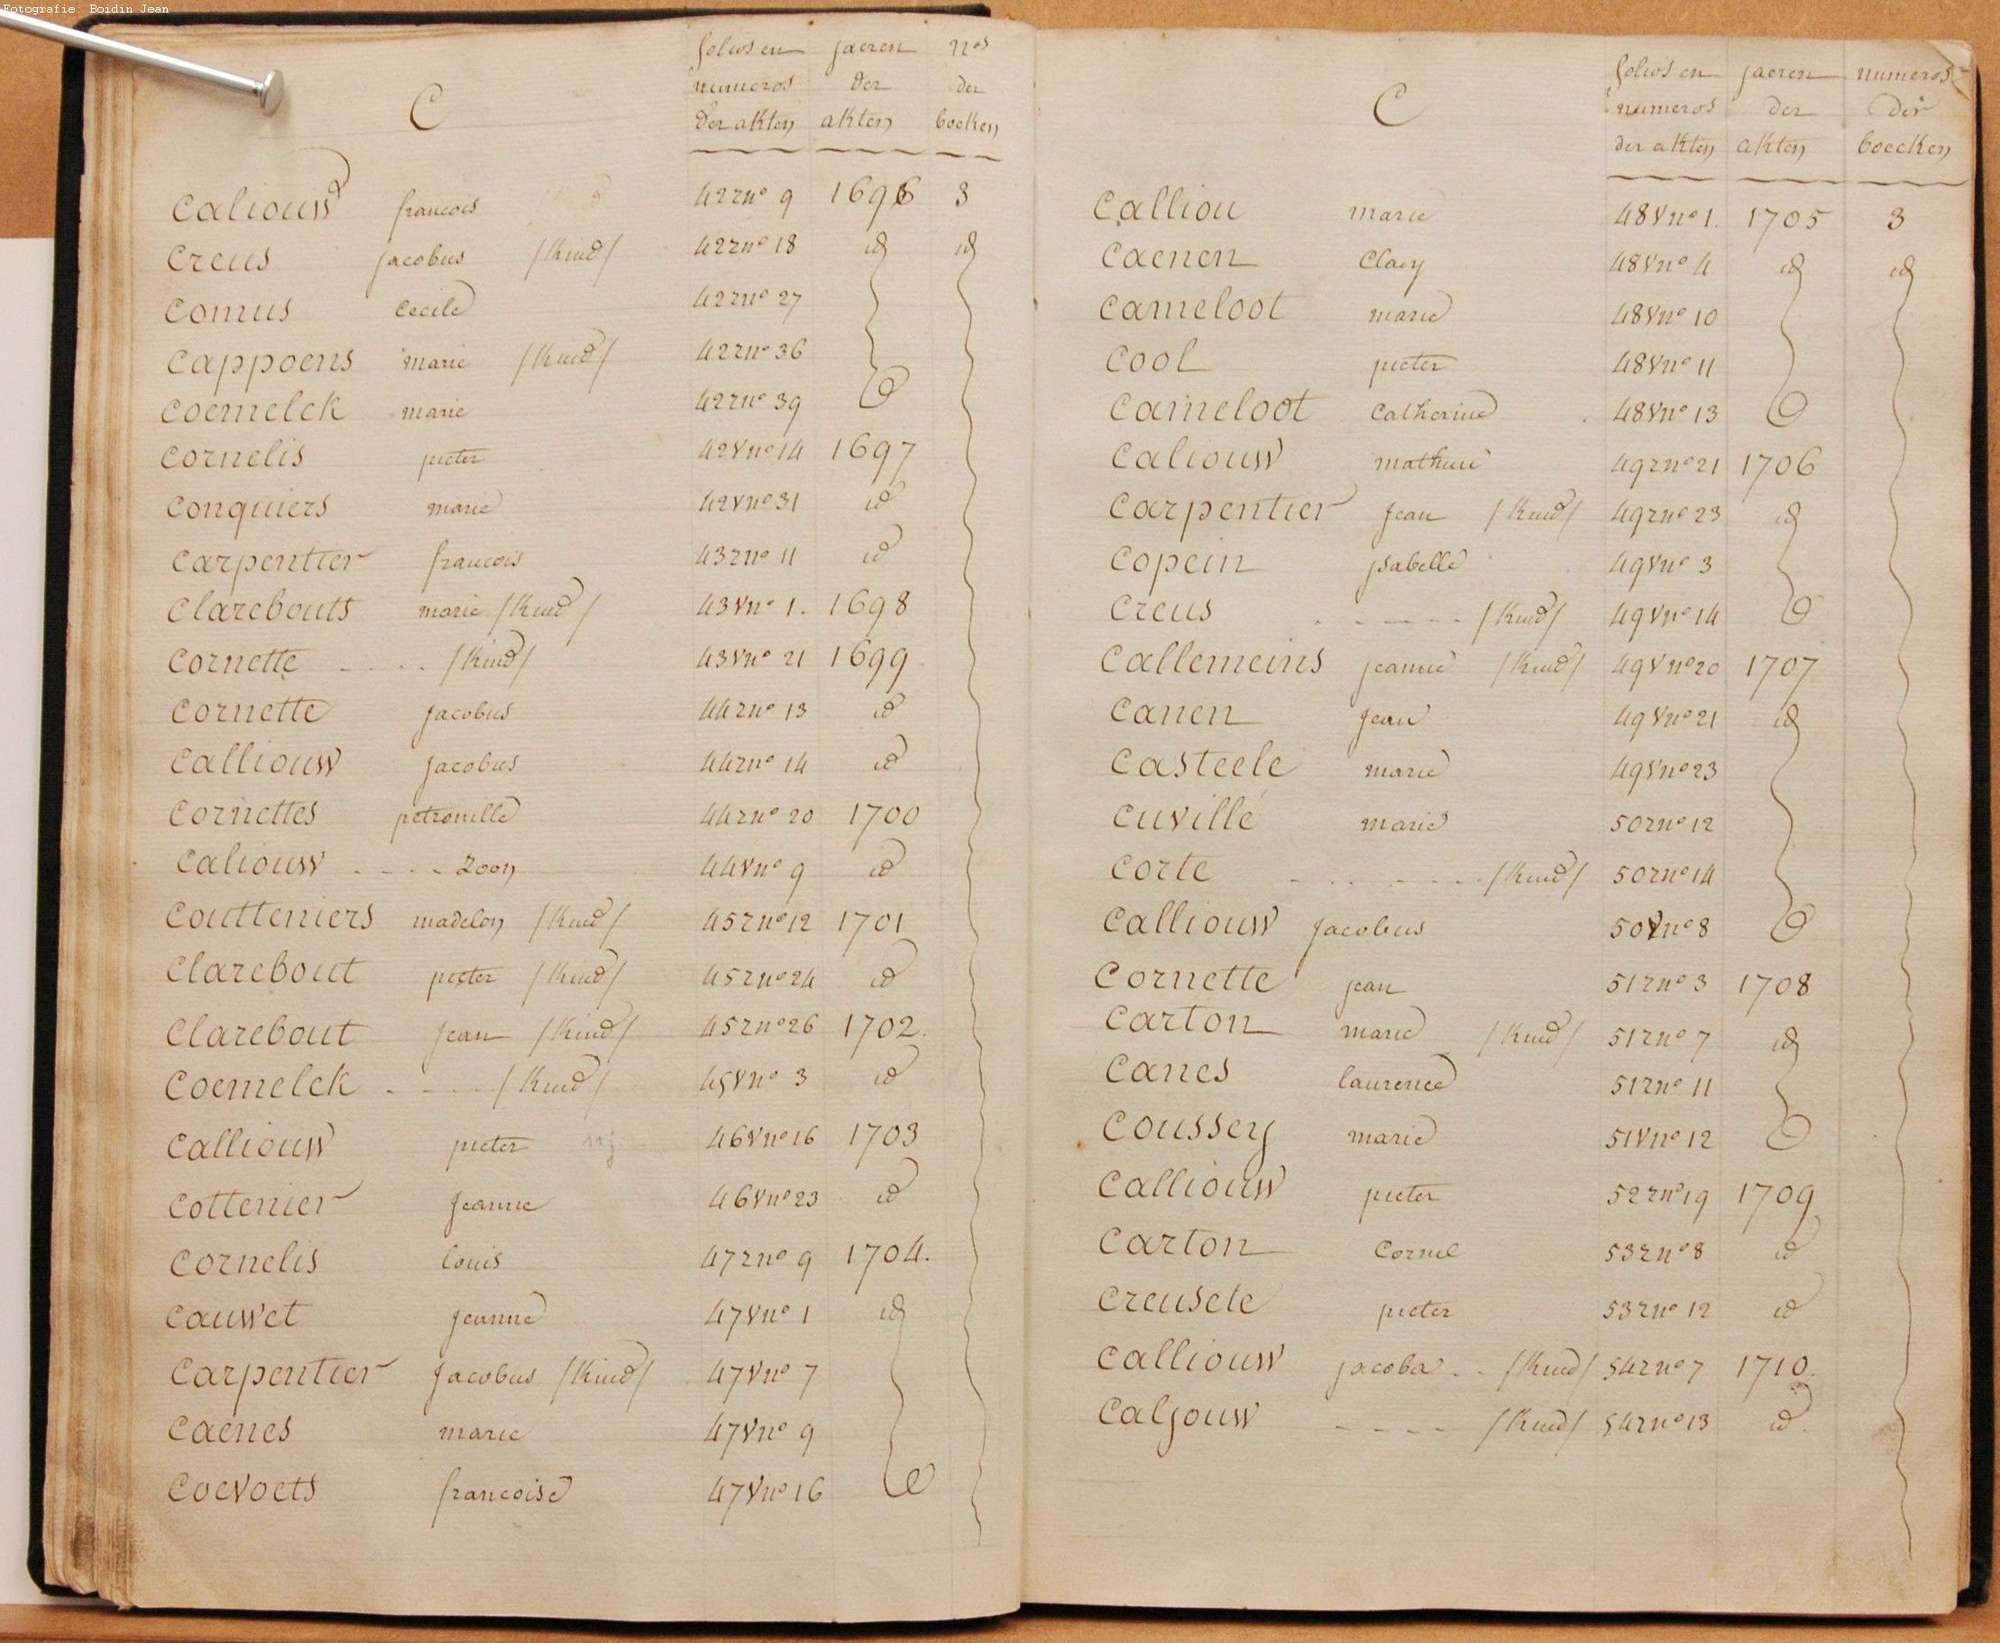 Fotografie: Boidin Jean
C
folios en jaeren nos
numeros der der
der akten akten boeken
Caliouw francois 42 r no 9 1696 3
Creus jacobus /kind/ 42 r no 18 id id
Comus Cecile 42 r no 27
Cappoens marie /kind/ 42 r no 36
Coemelck marie 42 r no 39
Cornelis pieter 42 v no 14 1697
Conquiers marie 42 v no 31 id
Carpentier francois 43 r no 11 id
Clarebouts marie /kind/ 43 v no 1. 1698
Cornette - . . . /kind/ 43 v no 21 1699
Cornette jacobus 44 r no 13 id
Calliouw jacobus 44 r no 14 id
Cornettes petronille 44 r no 20 1700
Caliouw . - . - Zoon 44 v no 9 id
Coutteniers madelon /kind/ 45 r no 12 1701
Clarebout pieter /kind/ 45 r no 24 id
Clarebout jean /kind/ 45 r no 26 1702.
Coemelck - - - - /kind/ 45 v no 3 id
Calliouw pieter 46 v no 16 1703
Cottenier jeanne 46 v no 23 id
Cornelis louis 47 r no 9 1704.
Cauwet jeanne 47 v no 1 id
Carpentier jacobus /kind/ 47 v no 7
Caenes marie 47 v no 9
Coevoets francoise 47 v no 16
C
folios en jaeren numeros
numeros der der
der akten akten boecken
Calliou marie 48 v no 1. 1705 3
Caenen Claey 48 v no 4 id id
Cameloot marie 48 v no 10
Cool pieter 48 v no 11
Cameloot Catherine 48 v no 13
Caliouw 49 r no 21 1706
Carpentier jean /kind/ 49 r no 23 id
Copein ysabelle 49 v no 3
Creus . - - - - /kind/ 49 v no 14
Callemeins jeanne /kind/ 49 v no 20 1707
Canen jean 49 v no 21 id
Casteele marie 49 v no 23
Cuvillé marie 50 r no 12
Corte - . . . - . - /kind/ 50 r no 14
Calliouw jacobus 50 v no 8
Cornette jean 51 r no 3 1708
Carton marie /kind/ 51 r no 7 id
Canes laurence 51 r no 11
Coussey marie 51 v no 12
Calliouw pieter 52 r no 19 1709
Carton Cornil 53 r no 8 id
Creusele pieter 53 r no 12 id
Calliouw jacoba . . /kind/ 54 r no 7 1710.
Caljouw - - - - /kind/ 54 r no 13 id.